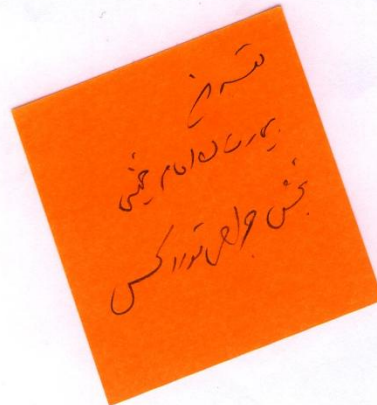 بیمارستان امام خمینی
بخش جراحی توراکس